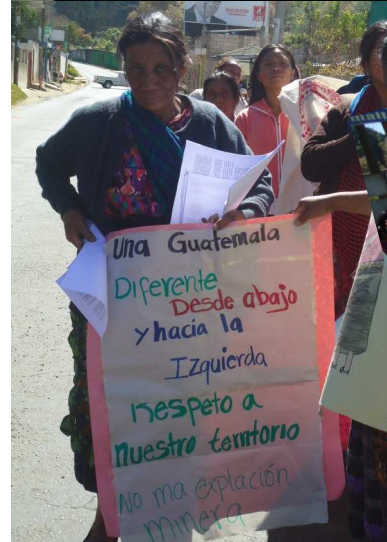 Una Guatemala
Diferente
Desde abajo
y hacia la
Izquierda
Respeto a
nuestro territorio
No ma explación
minera